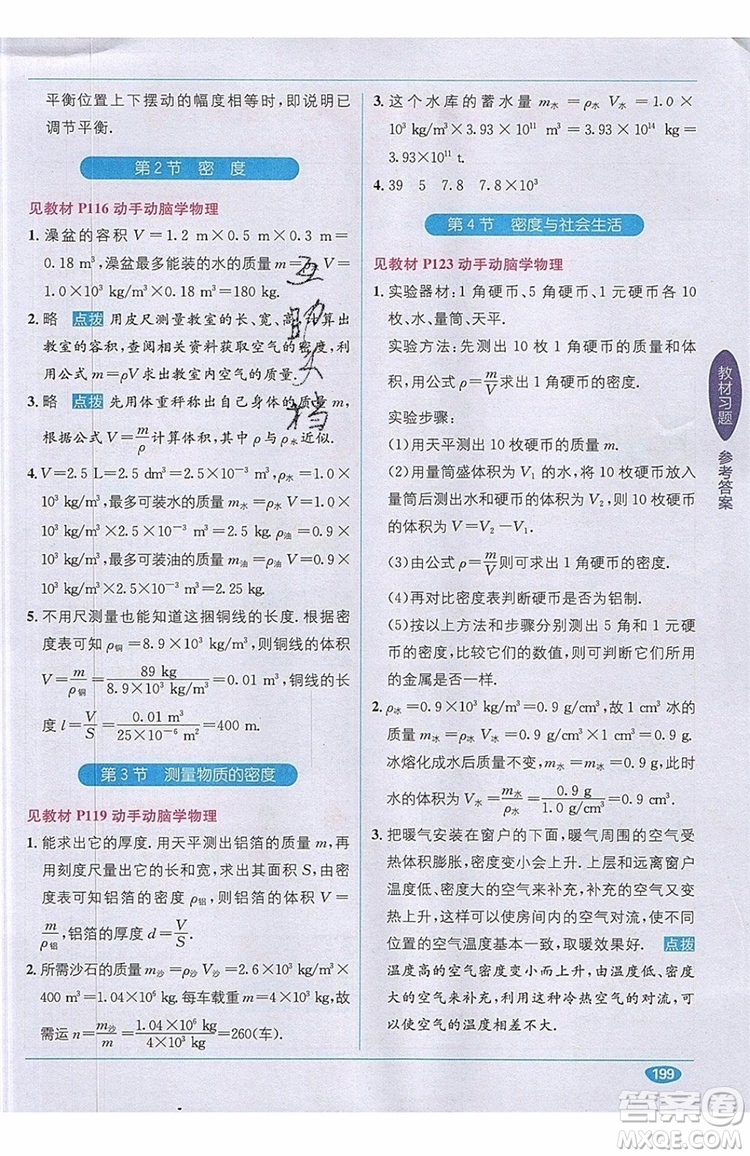 平衡位置上下摆动的幅度相等时,即说明已
调节平衡.
第2节 密 度
见教材 P116 动手动脑学物理
1. 澡盆的容积 V=1.2 m×0.5 m×0.3 m=
0.18 m³,澡盆最多能装的水的质量 m=ρV=
1.0×10³ kg/m³×0.18 m³=180 kg.
2. 略 点拨 用皮尺测量教室的长、宽、高,计算出
教室的容积,查阅相关资料获取空气的密度,
利用公式 m=ρV 求出教室内空气的质量.
3. 略 点拨 先用体重秤称出自己身体的质量 m,
根据公式 V=m/ρ计算体积,身体的密度 ρ与ρ水近似.
4. V=2.5 L=2.5 dm³=2.5×10⁻³ m³,ρ水=1.0×
10³ kg/m³,最多可装水的质量 m水=ρ水V=1.0×
10³ kg/m³×2.5×10⁻³ m³=2.5 kg,ρ油=0.9×
10³ kg/m³,最多可装油的质量 m油=ρ油V=0.9×
10³ kg/m³×2.5×10⁻³ m³=2.25 kg.
5. 不用尺测量也能知道这捆铜线的长度. 根据密
度表可知 ρ铜=8.9×10³ kg/m³,则铜线的体积
V=m/ρ铜=89 kg/8.9×10³ kg/m³=0.01 m³,铜线的长
度 l=V/S=0.01 m³/25×10⁻⁶ m²=400 m.
第3节 测量物质的密度
见教材 P119 动手动脑学物理
1. 能求出它的厚度. 用天平测出铝箔的质量 m,
再用刻度尺量出它的长和宽,求出其面积 S,由
密度表可查知铝箔的密度 ρ铝,则铝箔的体积 V=
m/ρ铝,铝箔的厚度 d=V/S.
2. 所需沙石的质量 m沙=ρ沙V沙=2.6×10³ kg/m³×
400 m³=1.04×10⁶ kg. 每车载重 m=4 t,故
需运 n=m沙/m=1.04×10⁶ kg/4×10³ kg=260(车).
3. 这个水库的蓄水量 m水=ρ水V水=1.0×
10³ kg/m³×3.93×10¹¹ m³=3.93×10¹⁴ kg=
3.93×10¹¹ t.
4. 39 5 7.8 7.8×10³
第4节 密度与社会生活
见教材 P123 动手动脑学物理
1. 实验器材:1 角硬币、5 角硬币、1 元硬币各 10
枚、水、量筒、天平.
实验方法:先测出 10 枚 1 角硬币的质量和体
积,再根据公式 ρ=m/V计算出 1 角硬币的密度.
实验步骤:
(1)用天平测出 10 枚硬币的质量 m.
(2)用量筒盛体积为 V₁ 的水,将 10 枚硬币放入
量筒中,测出水和硬币的总体积为 V₂,则 10 枚硬
币的体积为 V=V₂−V₁.
(3)由公式 ρ=m/V,可求出 1 角硬币的密度.
(4)再对比密度表判断硬币是否为铝制.
(5)按以上方法和步骤分别测出 5 角和 1 元硬
币的密度,比较它们的数值,则可判断出它们所用
的金属是否一样.
2. ρ冰=0.9×10³ kg/m³=0.9 g/cm³,故 1 cm³ 冰的
质量为 m冰=ρ冰V冰=0.9 g/cm³×1 cm³=0.9 g.
冰熔化成水后质量不变,m水=m冰=0.9 g,故
V水=m水/ρ水=0.9 g/1.0 g/cm³=0.9 cm³.
3. 把暖气安装在窗户的下面,暖气周围的空气受
热体积膨胀,密度变小会上升. 上升后远离窗户
温度低、密度大的空气来补充,补充的空气又受
热上升,这样可以使房间内的空气对流,较快地使不同
位置的空气温度基本一致,取暖效果好. 点拨
温度高的空气密度小会上升,温度低、密度大
的空气来补充,利用这种冷热空气的对流,可
使空气的温度相差不大.
教材习题
参考答案
互助文档
199
答案卷
MXQE.COM